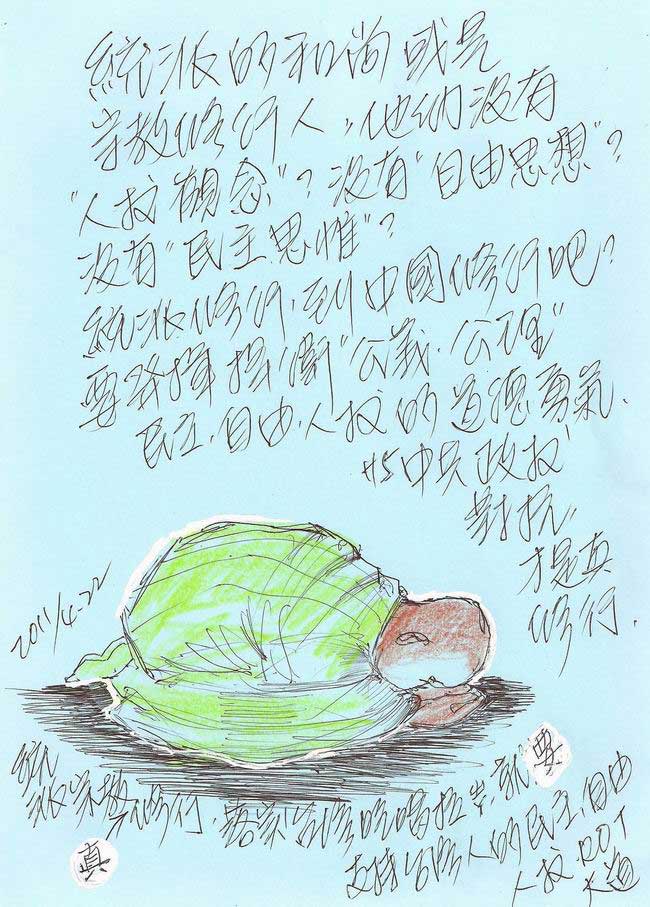 統派的和尚或是
宗教修行人,他們沒有
"人权觀念"?沒有"自由思想"?
沒有"民主思惟"?
統派修行,到中國修行吧?
要發揮捍衛"公義.公理"
民主.自由.人权的道德勇氣.
与中共政权
對抗,
才是真
修行.
2011/4-22
統派宗教修行,在台灣吃喝拉,就要
支持台灣人的民主.自由
人权.
大道
真